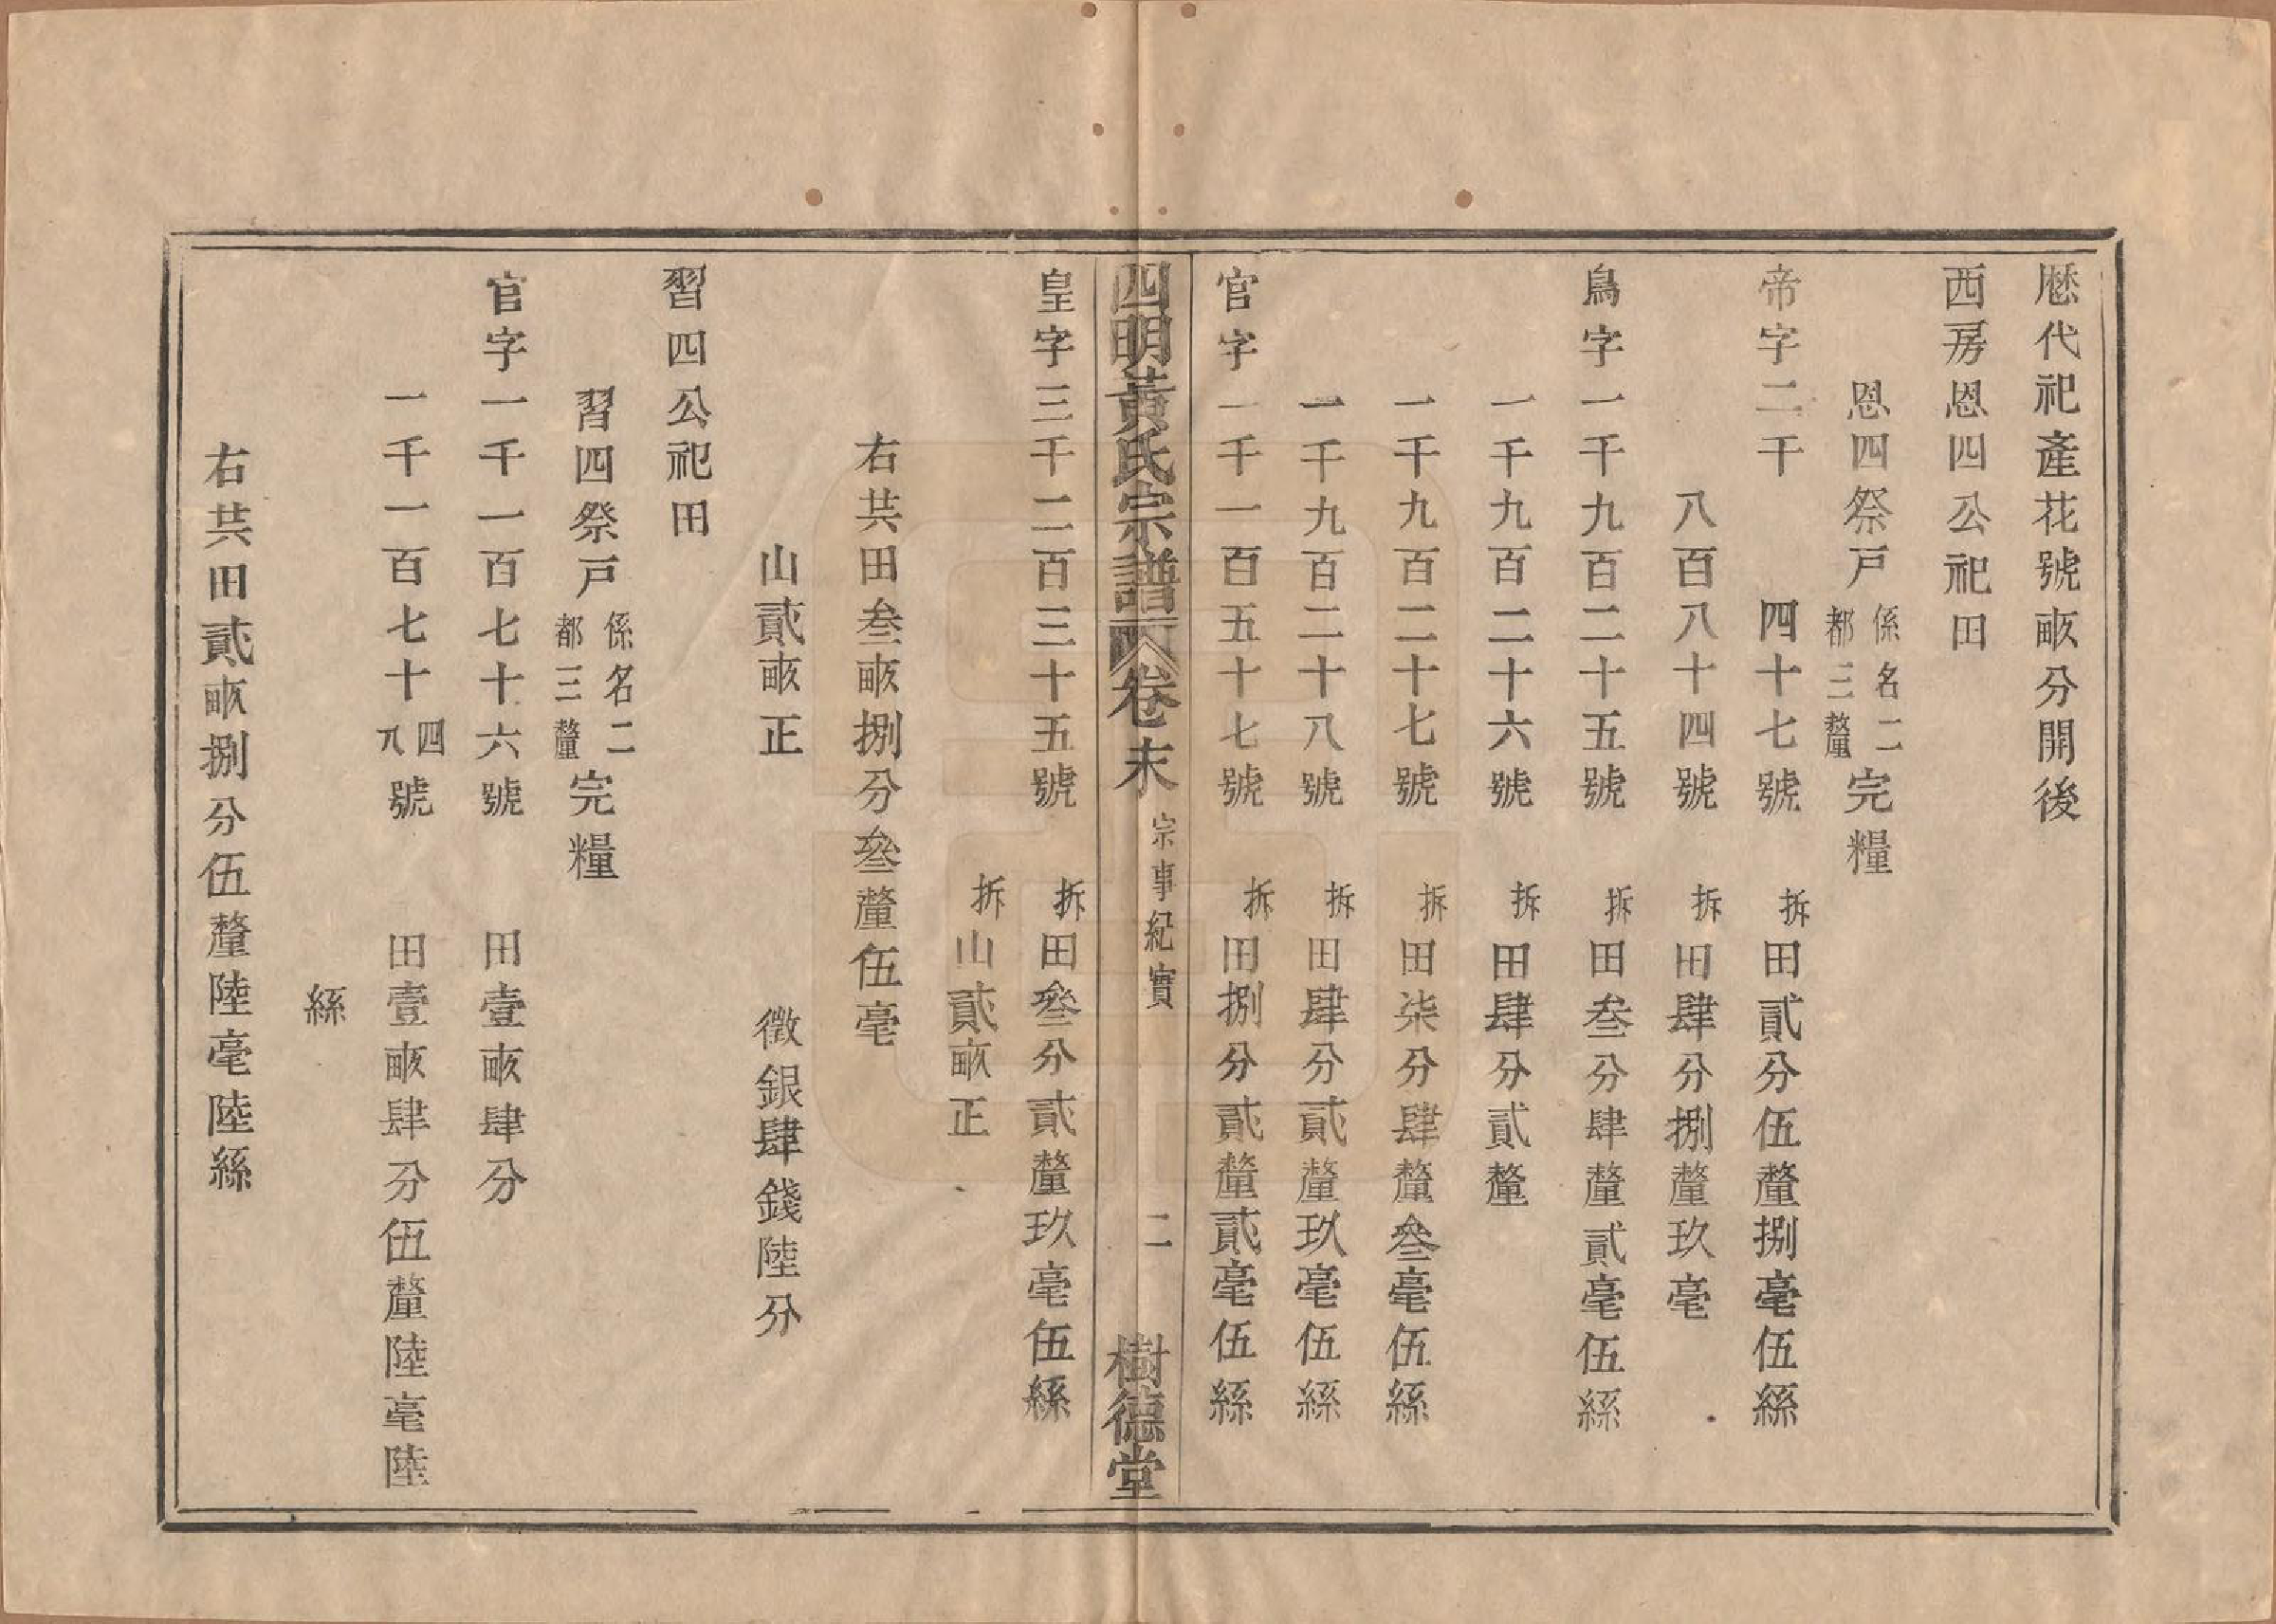 歷代祀產花號畞分開後
西房恩四公祀田
恩四祭戸係名二都三釐完糧
帝字二千　四十七號　拆田貳分伍釐捌毫伍絲
八百八十四號　拆田肆分捌釐玖毫
鳥字一千九百二十五號　拆田叁分肆釐貳毫伍絲
一千九百二十六號　拆田肆分貳釐
一千九百二十七號　拆田柒分肆釐叁毫伍絲
一千九百二十八號　拆田肆分貳釐玖毫伍絲
官字一千一百五十七號　拆田捌分貳釐貳毫伍絲
四明黃氏宗譜　卷末　宗事紀實　二　樹德堂
皇字三千二百三十五號　拆田叁分貳釐玖毫伍絲
拆山貳畞正
右共田叁畞捌分叁釐伍毫
山貳畞正　徵銀肆錢陸分
習四公祀田
習四祭戸係名二都三釐完糧
官字一千一百七十六號　田壹畞肆分
一千一百七十四八號　田壹畞肆分伍釐陸毫陸
絲
右共田貳畞捌分伍釐陸毫陸絲